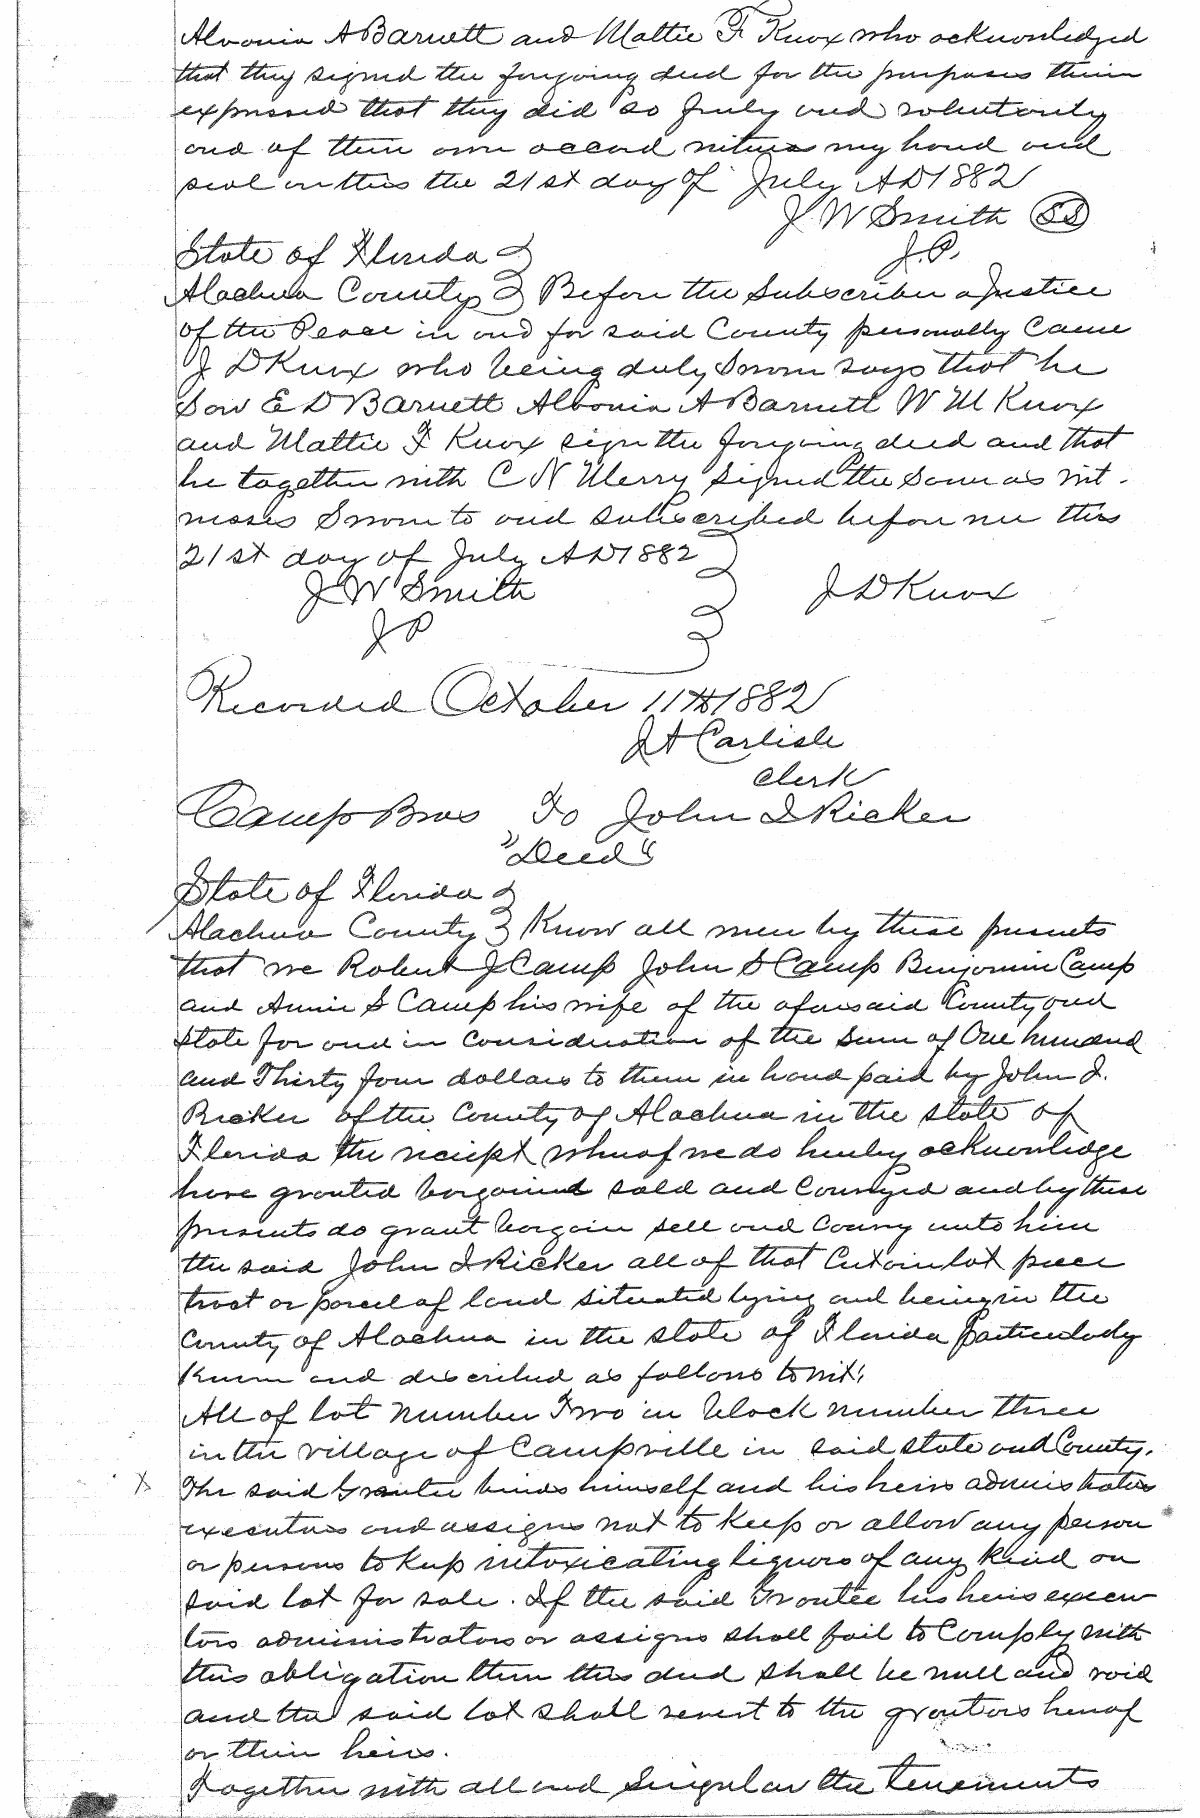 Alvonia A Barnett and Mattie F Knox who acknowledged
that they signed the foregoing deed for the purposes therin
expressed that they did so freely and voluntarily
and of their own accord witness my hand and
seal on this the 21st day of July AD 1882
J W Smith SS
J.P.
State of Florida
Alachua County Before the Subscriber a Justice
of the Peace in and for said County personally came
J D Knox who being duly Sworn says that he
Saw E D Barnett Alvonia A Barnett W M Knox
and Mattie F Knox sign the foregoing deed and that
he together with C N Merry signed the Same as wit-
nesses Sworn to and subscribed before me this
21st day of July AD 1882
J W Smith J D Knox
J P
Recorded October 11th 1882
J A Carlisle
clerk
Camp Bros To John I Ricker
"Deed"
State of Florida
Alachua County Know all men by these presents
that we Robert J Camp John S Camp Benjamin Camp
and Annie S Camp his wife of the aforesaid County and
State for and in consideration of the sum of One hundred
and Thirty four dollars to them in hand paid by John I.
Ricker of the County of Alachua in the state of
Florida the reciept whereof we do hereby acknowledge
have granted bargained sold and conveyed and by these
presents do grant bargain sell and convey unto him
the said John I Ricker all of that certain lot piece
tract or parcel of land situated lying and being in the
County of Alachua in the state of Florida particularly
known and described as follows to wit;
All of lot number Two in block number three
in the village of Campville in said state and County.
X The said Grantee binds himself and his heirs administrators
executors and assigns not to keep or allow any person
or persons to keep intoxicating liquors of any kind on
said lot for sale. If the said Grantee his heirs execu
tors administrators or assigns shall fail to comply with
this obligation then this deed shall be null and void
and the said lot shall revert to the grantors hereof
or their heirs.
Together with all and Singular the tenements